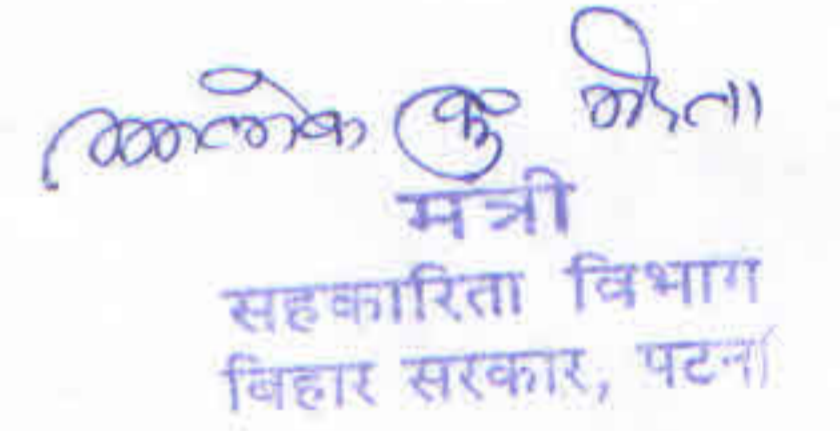 आलोक कु मेहता
मंत्री
सहकारिता विभाग
बिहार सरकार, पटना